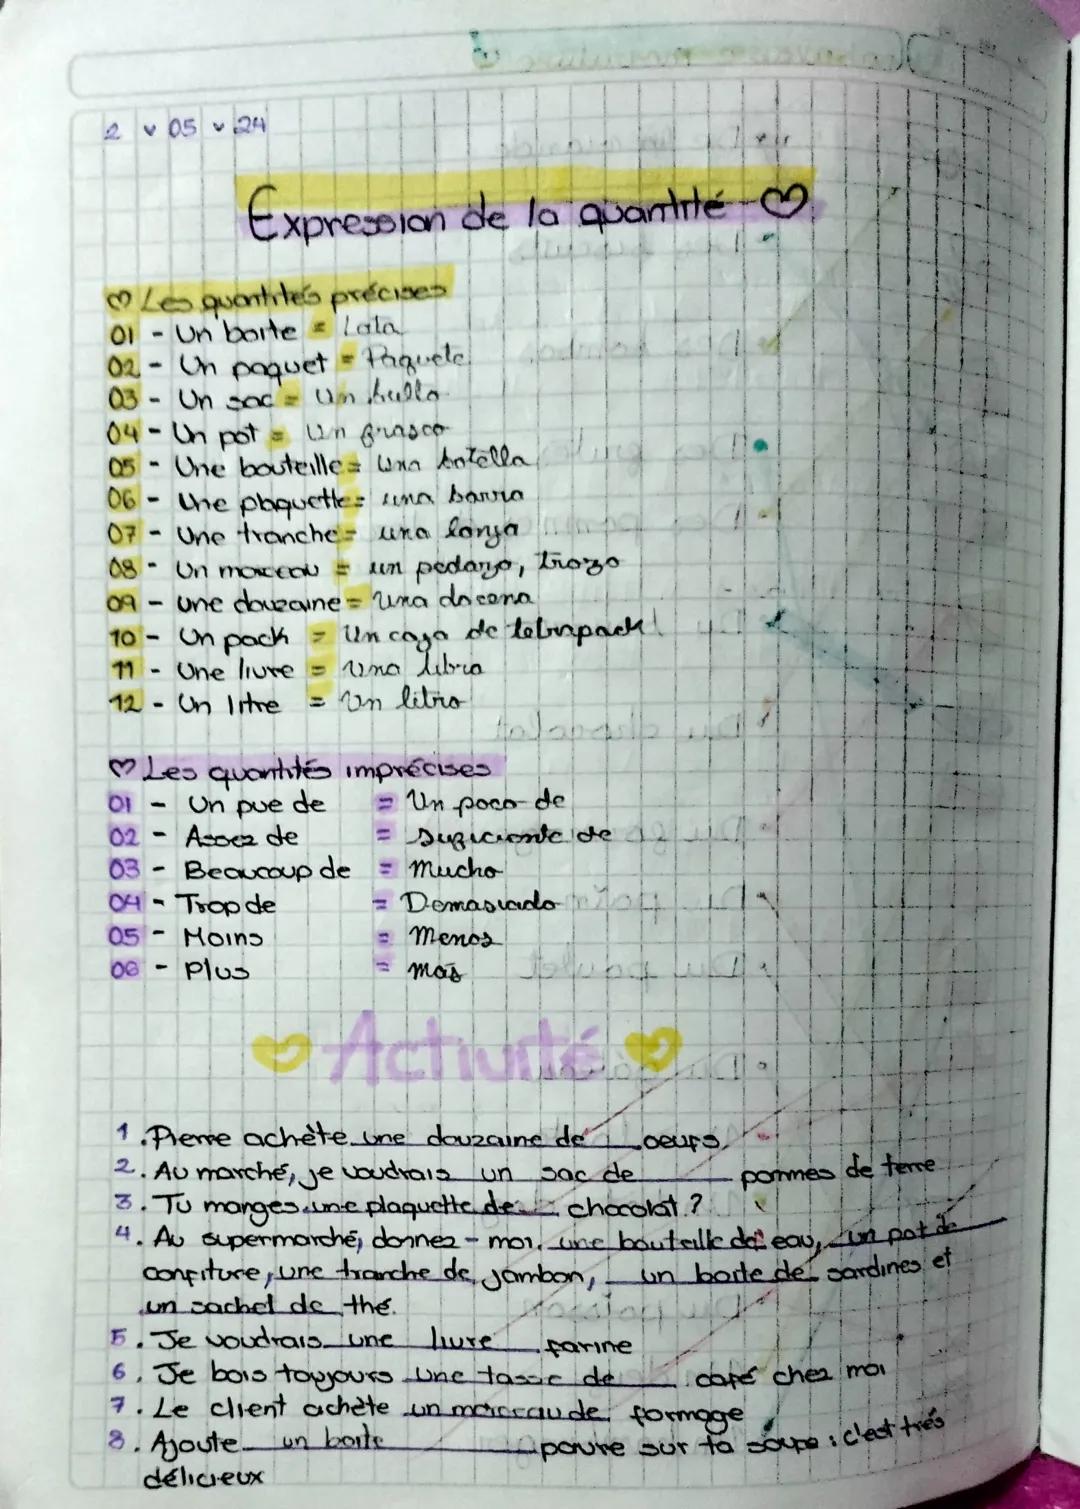 2 05 24
Expression de la quantité
Les quantités précises
01 - Un boite = Lata
02 - Un paquet = Paquete
03 - Un sac = Un bulto
04 - Un pot = Un frasco
05 - Une bouteille = Una botella
06 - Une plaquette = una barra
07 - Une tranche = una lonja
08 - Un morceau = un pedazo, trozo
09 - une douzaine = Una docena
10 - Un pack = Un caja de tetrapack
11 - Une livre = Una libra
12 - Un litre = Un litro
Les quantités imprécises
01 - Un pue de = Un poco de
02 - Assez de = suficiente de
03 - Beaucoup de = Mucho
04 - Trop de = Demasiado
05 - Moins = Menos
06 - Plus = más
Activité
1. Pierre achète une douzaine de oeufs
2. Au marché, je voudrais un sac de pommes de terre
3. Tu manges une plaquette de chocolat?
4. Au supermarché, donnez-moi une bouteille de eau, un pot de
confiture, une tranche de jambon, un boite de sardines et
un sachet de thé.
5. Je voudrais une livre farine
6. Je bois toujours une tasse de café chez moi
7. Le client achète un morceau de formage
8. Ajoute un boite poivre sur ta soupe : c'est trés
délicieux